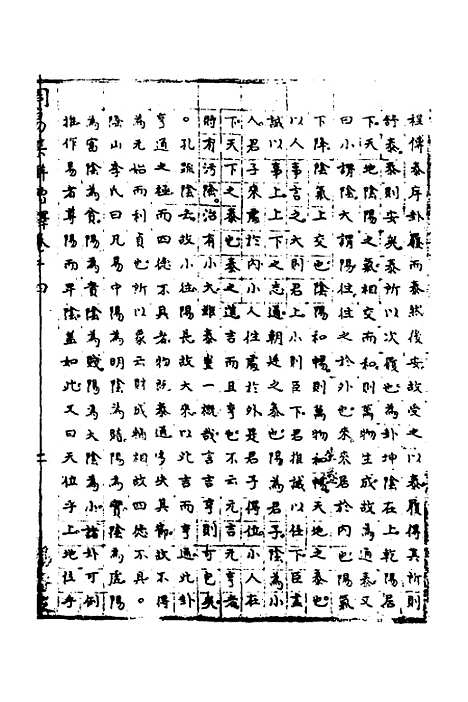 程傳泰序卦履而泰然後安故受之以泰履得其所則
舒泰泰則安矣泰所以次履也為卦坤陰在上乾陽居
下天地陰陽之氣相交而和則萬物生成故為通泰又
曰小謂陰大謂陽往往之於外也來來居於內也陽氣
下降陰氣上交也陰陽和暢則萬物和暢天地之泰也
以人事言之大則君上小則臣下君推誠以任下臣盡
誠以事上上下之志通朝廷之泰也陽為君子陰為小
人君子來處於內小人往處於外是君子得位小人在
下天下之泰也泰之道吉而且亨也不云元吉元亨者
時有污隆治有小大雖泰豈一概哉言吉亨則可包矣
。孔疏陰去故小往陽長故大來以此吉而亨通此卦
亨通之極而四德不具者物既泰通失其節故不得
為元始而利貞也所以象云財成輔相故四德不具。
隆山李氏曰凡易中陽為明陰為暗陽為實陰為虛陽
為富陰為貧陽為貴陰為賤陽為大陰為小諸卦可例
推作易者尊陽而卑陰蓋如此又曰天位乎上地位乎